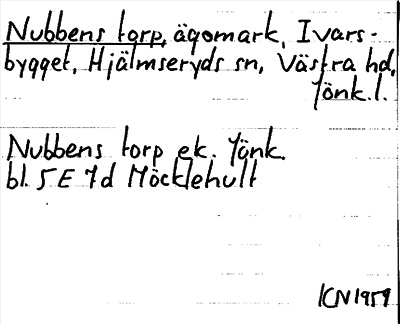 Nubbens torp, ägomark, Ivars-
bygget, Hjälmseryds sn, Västra hd,
Jönk. l.
Nubbens torp ek. Jönk.
bl. 5 E 7d Möcklehult
ICN 1959